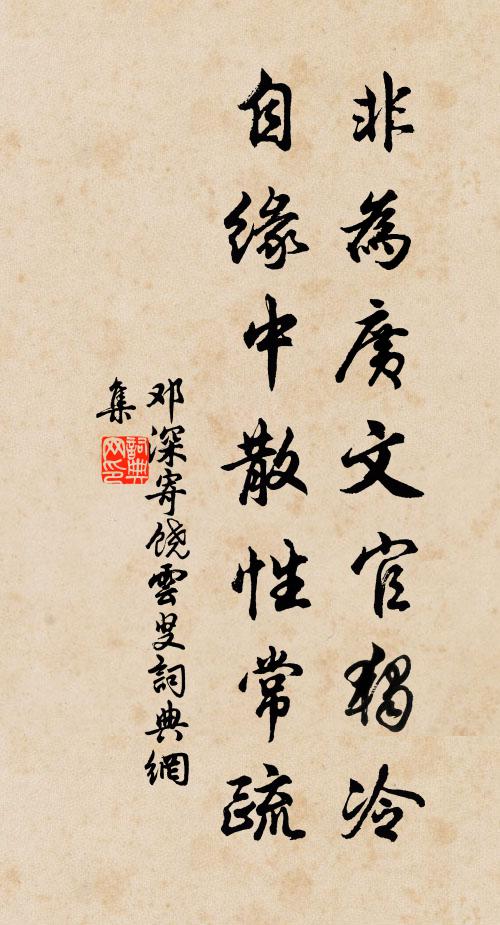 非為廣文官獨冷
自緣中散性常疏
邓深寄饶雲叟詞典網
集
詞典
网印